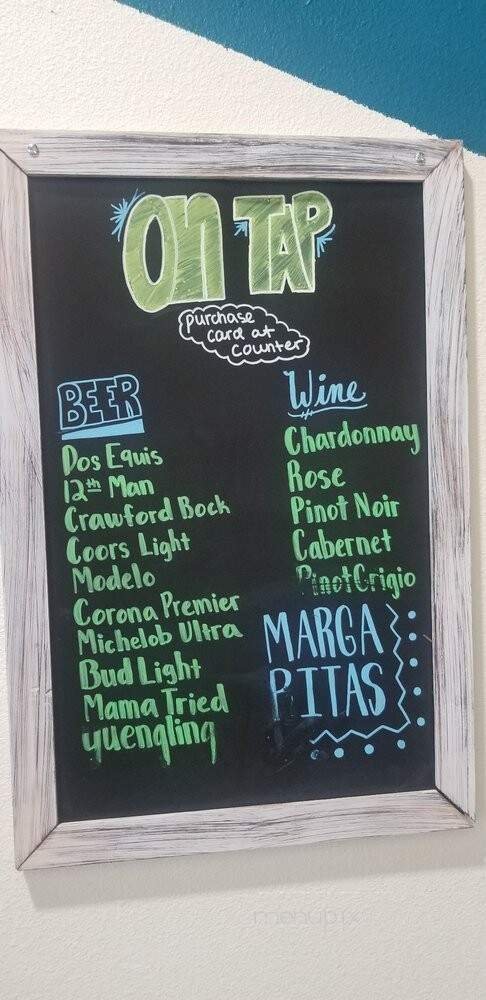 ON TAP
purchase
card at
counter
BEER
Dos Equis
12th Man
Crawford Bock
Coors Light
Modelo
Corona Premier
Michelob Ultra
Bud Light
Mama Tried
yuengling
Wine
Chardonnay
Rose
Pinot Noir
Cabernet
Pinot Grigio
MARGA
RITAS
menupix